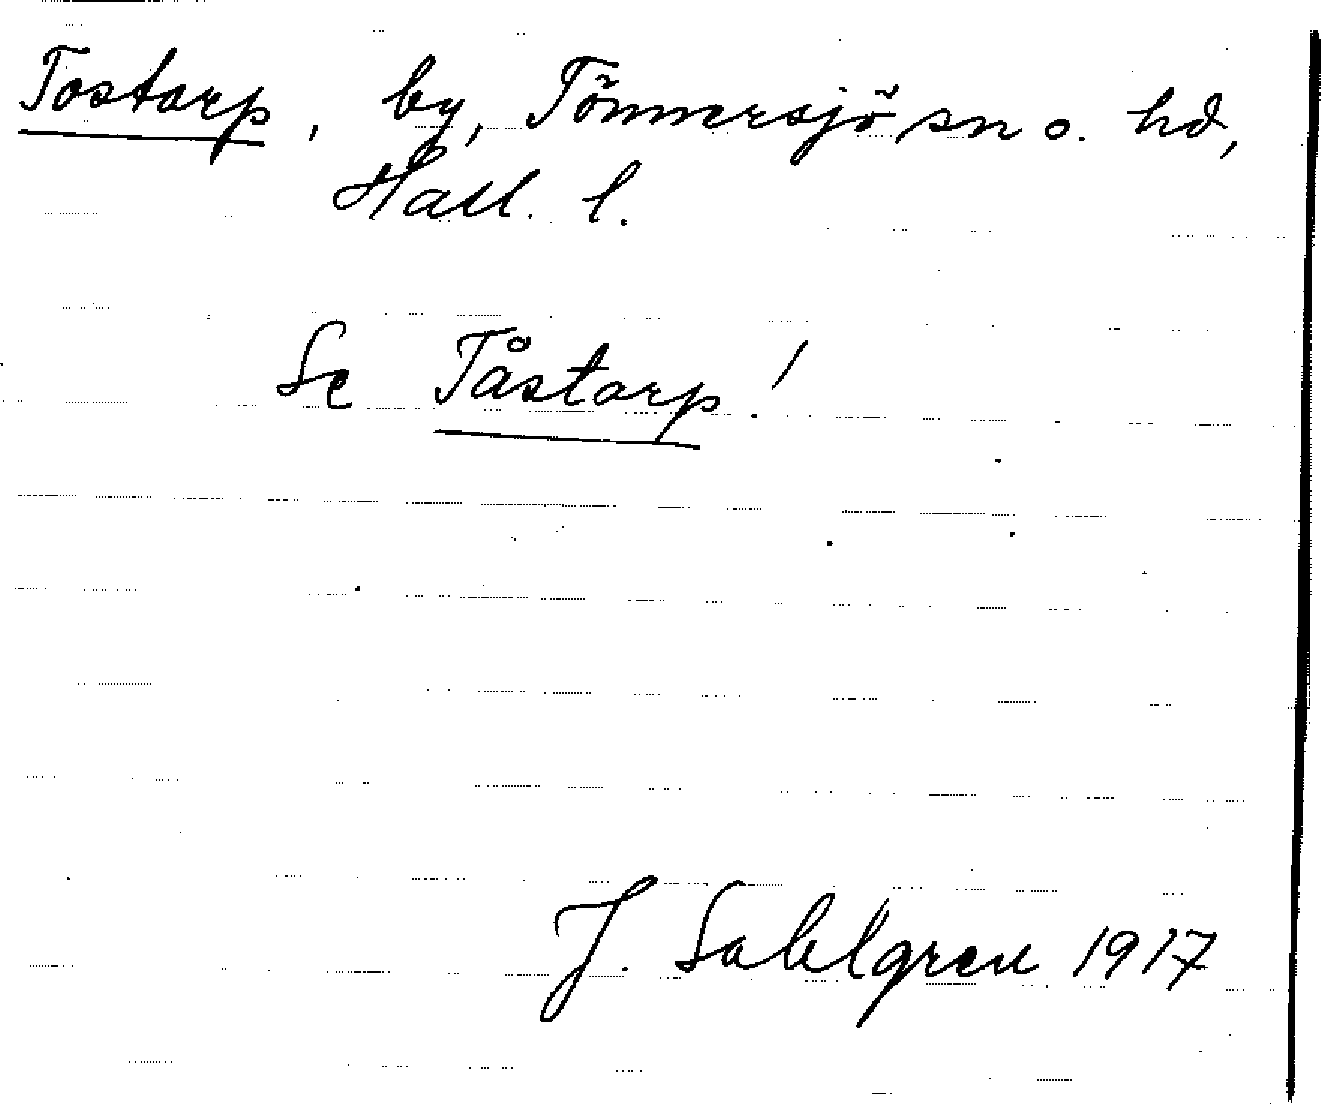 Tostarp, by, Tönnersjö sn o. hd,
Hall. l.
Se Tåstarp!
J. Sahlgren 1917